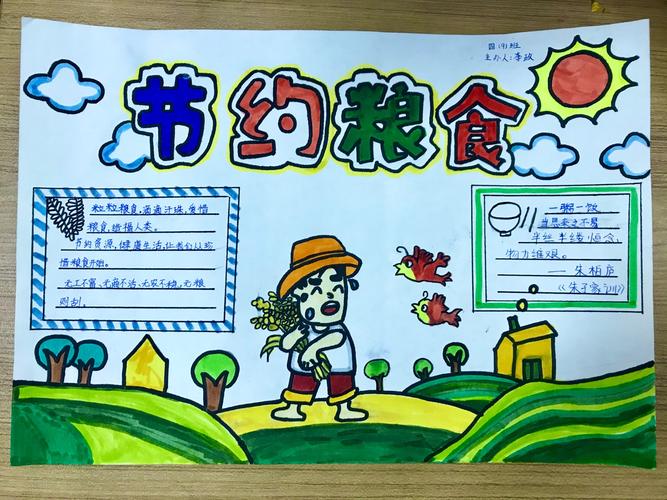 四(9)班
主办人:李政
节约粮食
粒粒粮食,滴滴汗珠,爱惜
粮食,造福人类。
节约资源,健康生活,让我们从珍
惜粮食开始。
无工不富、无商不活、无农不稳,无粮
一粥一饭
当思来之不易
半丝半缕恒念,
物力维艰。
— 朱柏庐
《朱子家训》